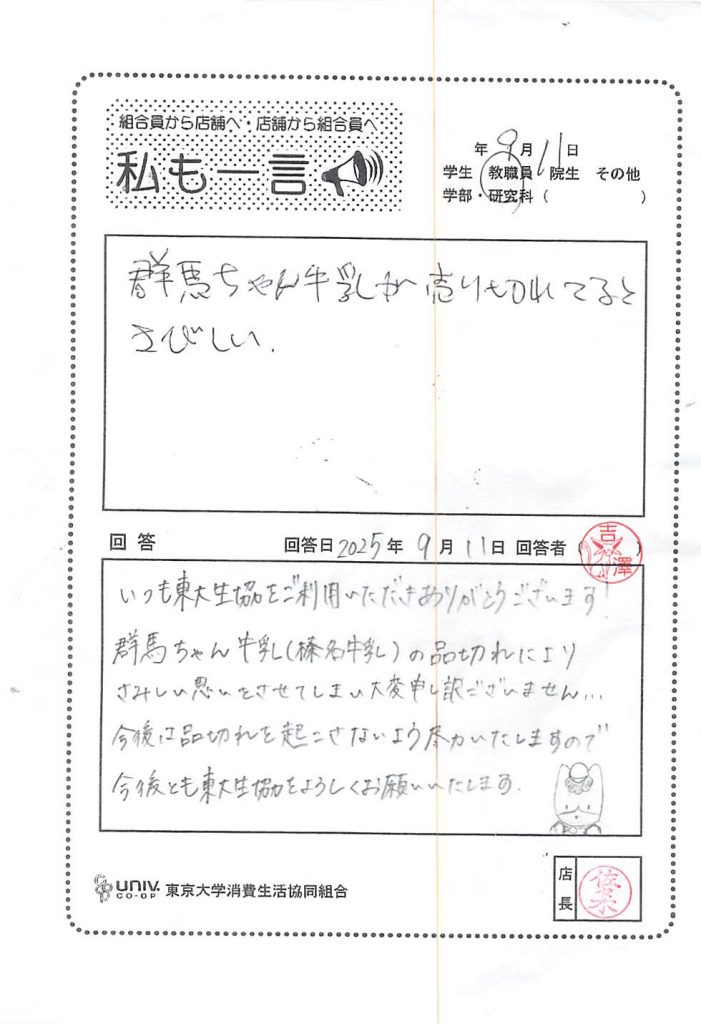 組合員から店舗へ・店舗から組合員へ
私も一言
年 9月 11日
学生 教職員 院生 その他
学部・研究科( )
群馬ちゃん牛乳が売り切れてると
さびしい.
回答 回答日 2025年 9月 11日 回答者( 吉澤 )
いつも東大生協をご利用いただきありがとうございます!
群馬ちゃん牛乳(榛名牛乳)の品切れにより
さみしい思いをさせてしまい大変申し訳ございません...
今後は品切れを起こさないよう尽力いたしますので
今後とも東大生協をよろしくお願いいたします.
UNIV. CO-OP 東京大学消費生活協同組合
店長